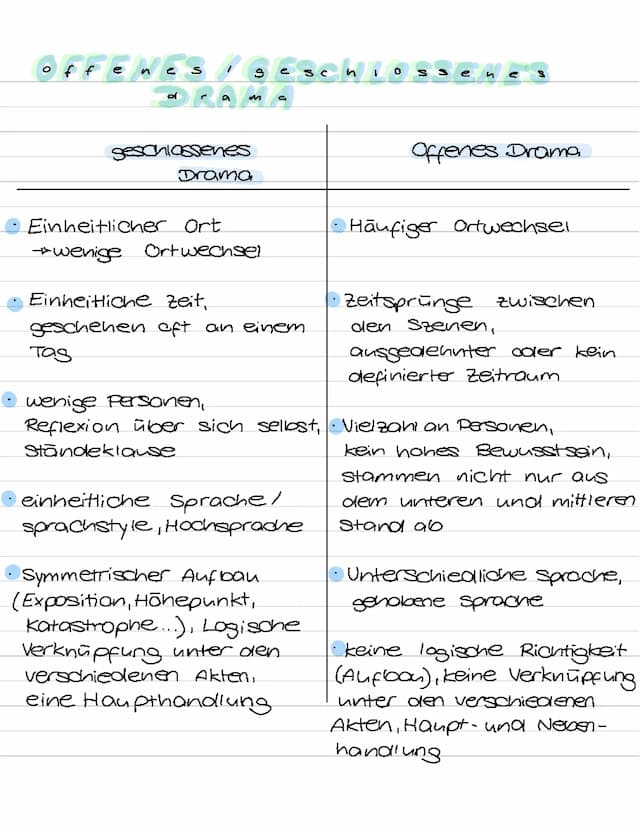 OFFENES / GESCHLOSSENES
DRAMA
geschlossenes
Drama
Einheitlicher Ort
→ wenige Ortwechsel
Einheitliche Zeit,
geschehen oft an einem
Tag
wenige Personen,
Reflexion über sich selbst,
Ständeklause
einheitliche Sprache/
sprachstyle, Hochsprache
Symmetrischer Aufbau
(Exposition, Höhepunkt,
Katastrophe...), Logische
Verknüpfung unter den
verschiedenen Akten,
eine Haupthandlung
Offenes Drama
Häufiger Ortwechsel
Zeitsprünge zwischen
den Szenen,
ausgedehnter oder kein
definierter Zeitraum
Vielzahl an Personen,
kein hohes Bewusstsein,
stammen nicht nur aus
dem unteren und mittleren
Stand ab
Unterschiedliche Sprache,
gehobene Sprache
keine logische Richtigkeit
(Aufbau), keine Verknüpfung
unter den verschiedenen
Akten, Haupt- und Neben-
handlung